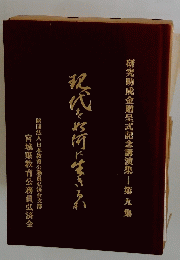 研究助成金贈呈式記念講演集―第九集
現代を如何に生きるか
財団法人日本教育公務員弘済会宮城支部
宮城県教育公務員弘済会